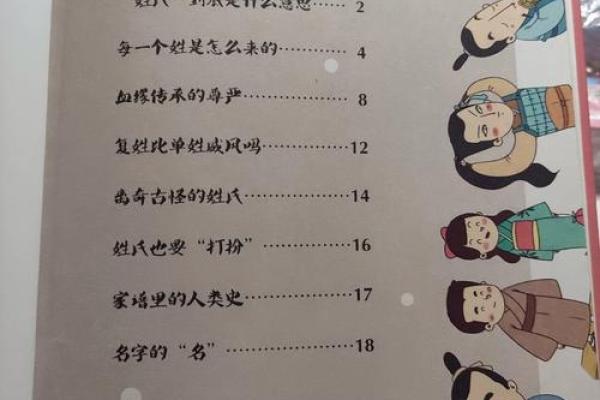 “姓氏”到底是什么意思…… 2
每一个姓是怎么来的………… 4
血缘传承的尊严……………… 8
复姓比单姓威风吗…………12
离奇古怪的姓氏……………14
姓氏也要“打扮”……………16
家谱里的人类史……………17
名字的“名”………………18